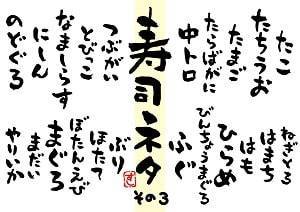 寿司ネタ
その3
たこ
たちうお
たまご
たらばがに
中トロ
つぶがい
とびっこ
にしん
なましらす
のどぐろ
ねぎとろ
はまち
はも
ひらめ
びんちょうまぐろ
ふぐ
ぶり
ほたて
ぼたんえび
まぐろ
まだい
やりいか